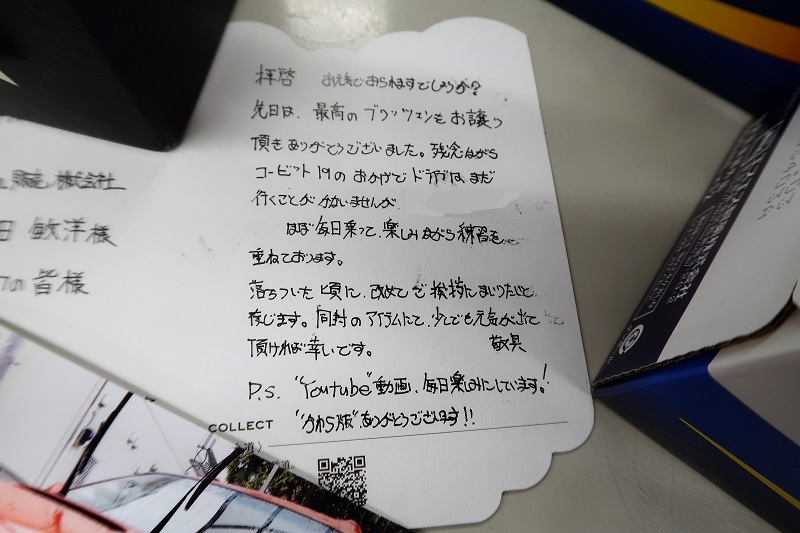 拝啓 お元気でおられますでしょうか?
先日は、最高の をお譲り
頂きありがとうございました。残念ながら
コービット19のおかげで ドライブは、まだ
行くことが 叶いませんが、
ほぼ毎日乗って、楽しみながら練習を
重ねております。
落ちついた頃に、改めてご挨拶にまいりたいと
存じます。同封のアイテムにて、少しでも元気が出て
頂ければ幸いです。 敬具
P.S. "Youtube"動画、毎日楽しみにしています!
"かわら版"ありがとうございます!!
販売株式会社
田 敏洋様
の皆様
COLLECT